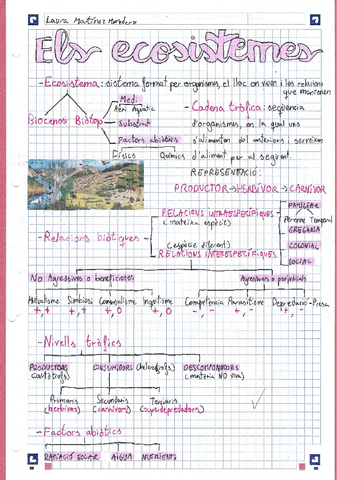 Laura Martínez
Els ecosistemes
-Ecosistema: sistema format per organismes, el lloc on viuen i les relacions
que mantenen
Biocenosi Biòtop
Medi
Aeri Aquàtic
Substrat
Factors abiòtics
Físics Químics
-Cadena tròfica: seqüència
d'organismes, en la qual uns
s'alimentan del anteriors i serveixen
d'aliment per al següent.
REPRESENTACIÓ:
PRODUCTOR→HERBÍVOR→CARNÍVOR
-Relacions biòtiques
RELACIONS INTRAESPECÍFIQUES
(mateixa espècie)
FAMILIAR
Perenne Temporal
GREGÀRIA
COLONIAL
SOCIAL
(espècie diferent)
RELACIONS INTERESPECÍFIQUES
No Agressives o beneficioses
Agresives o perjudicials
Mutualisme Simbiosi Comensalisme Inquilinisme
+ + + + +, 0 +, 0
Competència Parasitisme Depredació-Presa
-, - +, - +, -
-Nivells tròfics
PRODUCTORS CONSUMIDORS (heteròtrofs) DESCOMPONEDORS
(autòtrofs) (matèria NO viva)
Primaris Secundaris Terciaris
(herbívors) (carnívors) (superdepredadors)
-Factors abiòtics
RADIACIÓ SOLAR AIGUA NUTRIENTS